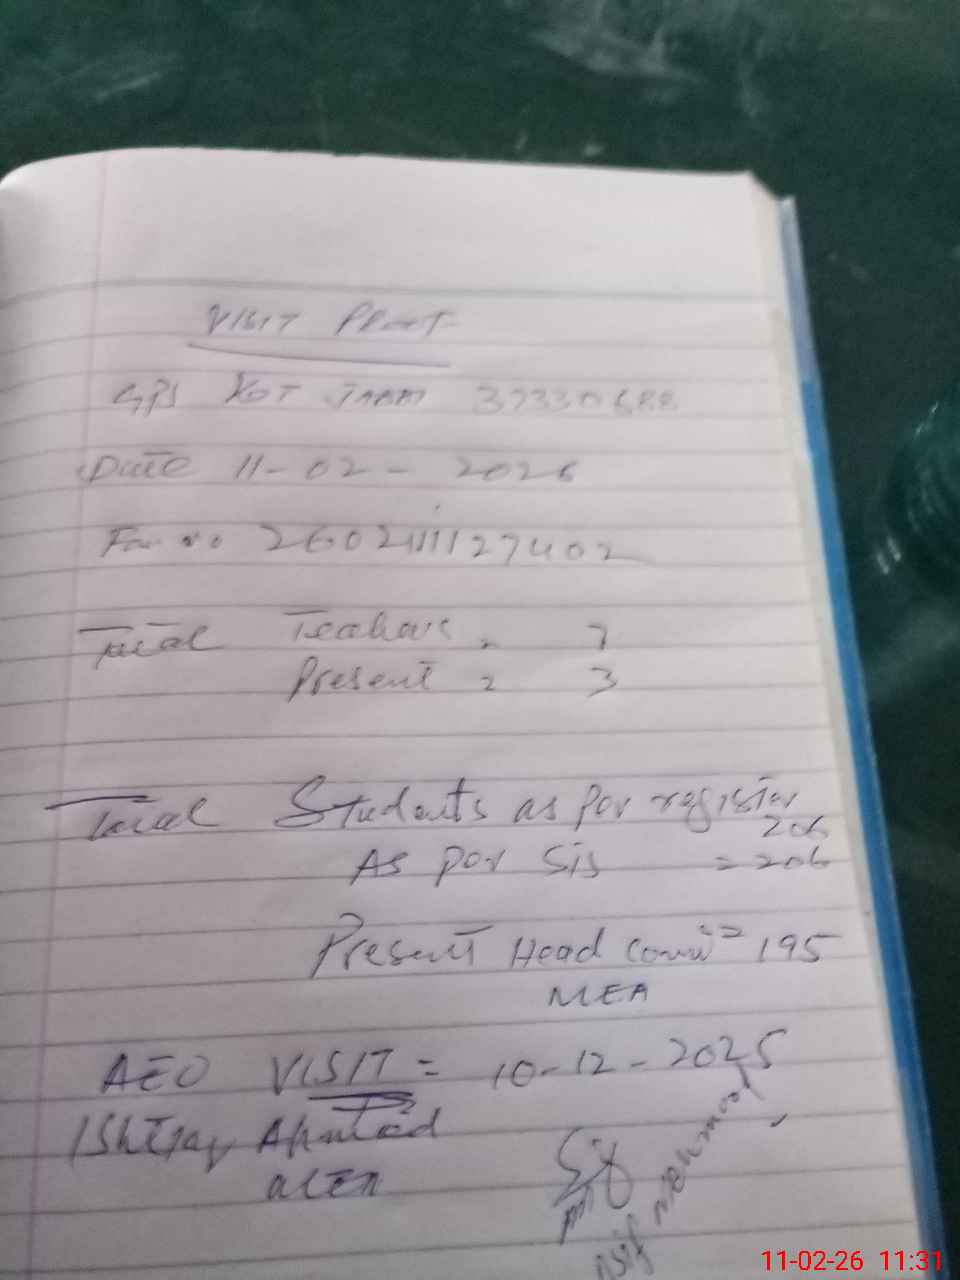 VISIT Proof
GPS KOT JAAM 37330688
Date 11-02-2026
For no 260211127402
Total Teahars = 7
Present = 3
Total Students as per register
206
As per Sis = 206
Present Head Count = 195
MEA
AEO VISIT = 10-12-2025
Ishtiaq Ahmad
MEA
Asif Mehmood
11-02-26 11:31